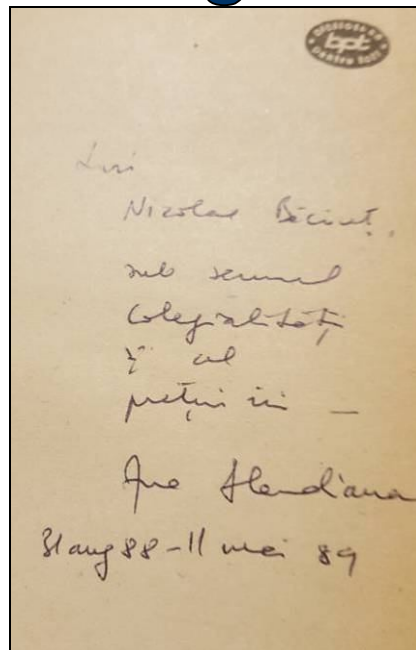 biblioteca
bpt
pentru toți
Lui
Nicolae Băciuț,
sub semnul
colegialității
și al
prețuirii —
Ana Blandiana
31 aug 88 – 11 mai 89